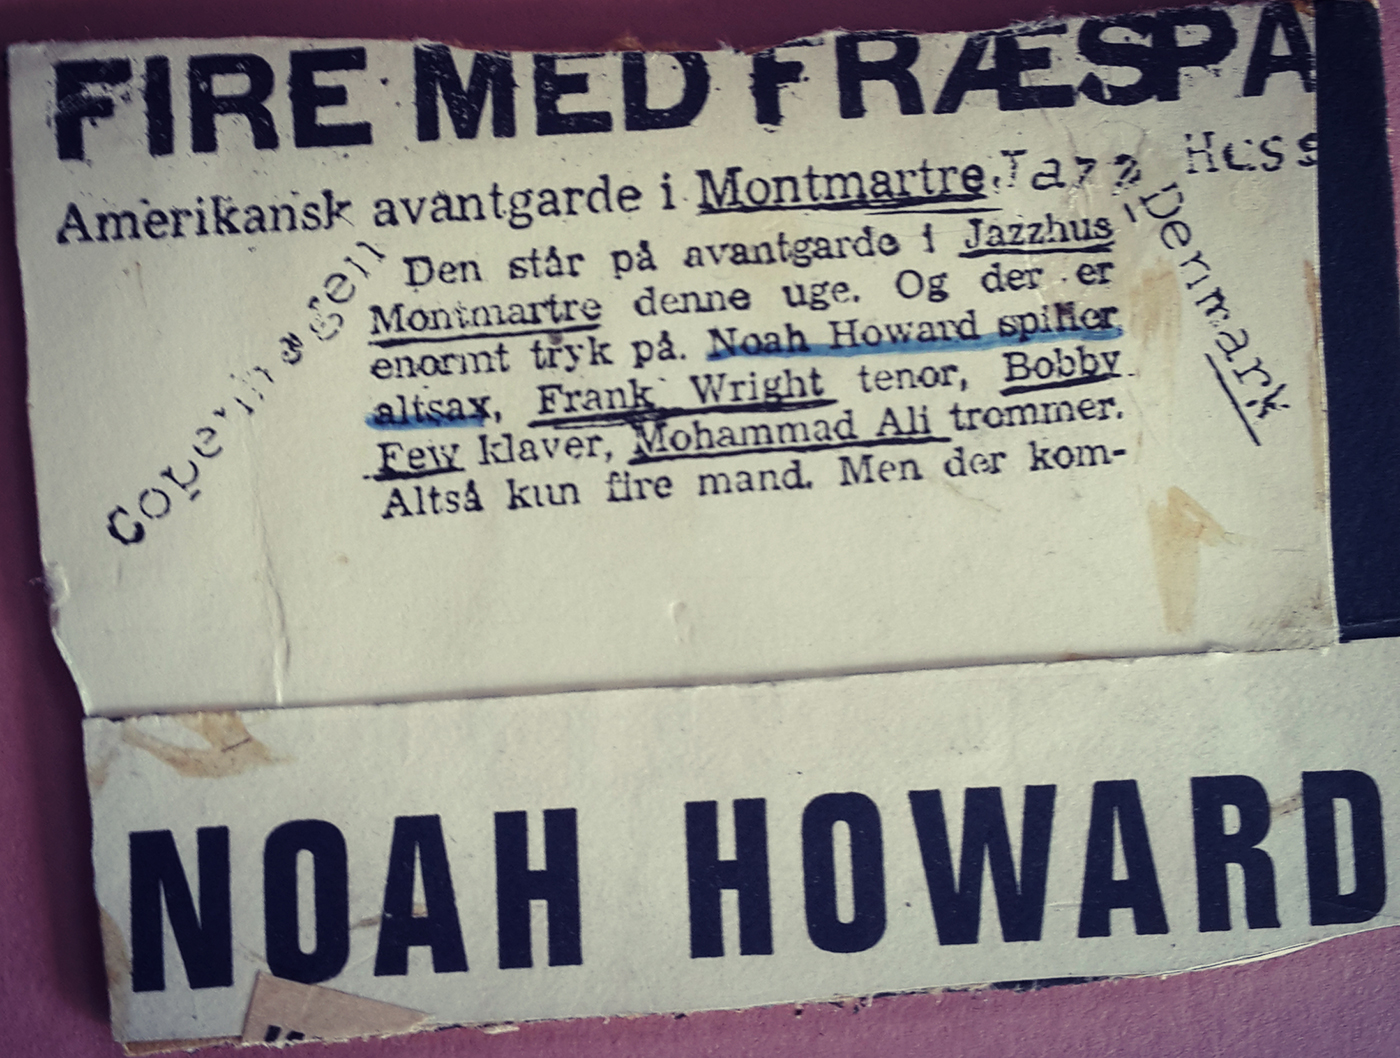 FIRE MED FRÆSPA
Amerikansk avantgarde i Montmartre. Jazz Huss
Copenhagen Denmark
Den står på avantgarde i Jazzhus
Montmartre denne uge. Og der er
enormt tryk på. Noah Howard spiller
altsax, Frank Wright tenor, Bobby
Few klaver, Mohammad Ali trommer.
Altså kun fire mand. Men der kom-
NOAH HOWARD